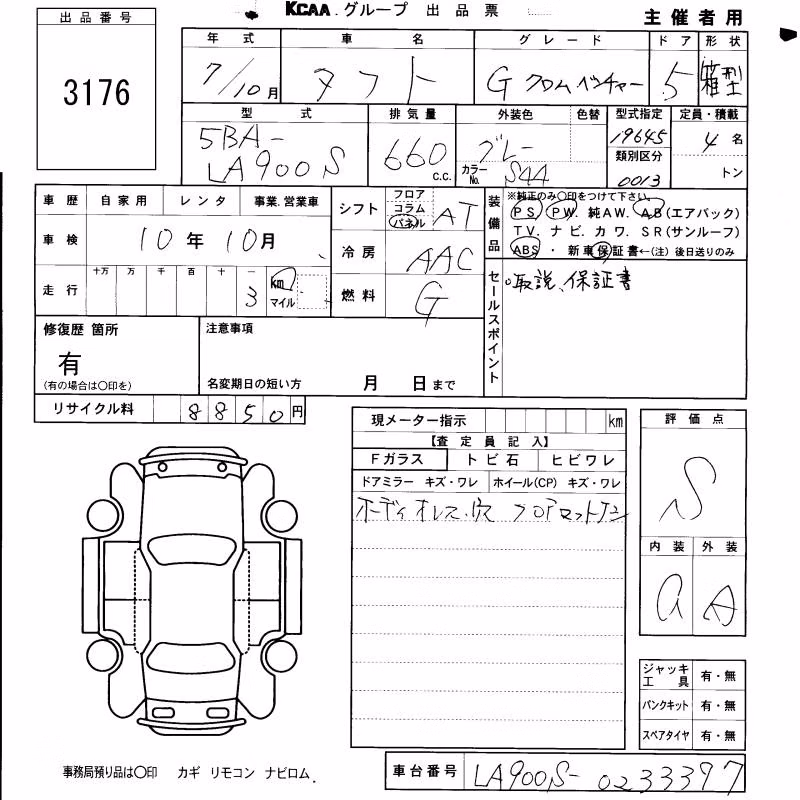 KCAA. グループ 出品票
主催者用
出品番号
3176
年式 車名 グレード ドア 形状
7/10月 タフト G クロムベンチャー 5 箱型
型式 排気量 外装色 色替 型式指定 定員・積載
5BA-
LA900S
660 c.c.
グレー
カラーNo. S44
19645
類別区分
0013
4名
トン
車歴 自家用 レンタ 事業.営業車
車検 10年10月
走行 十万 万 千 百 十 一
3 km マイル
シフト フロア コラム パネル AT
冷房 AAC
燃料 G
装備品
※純正のみ〇印をつけて下さい。
PS. PW. 純AW. AB(エアバック)
TV. ナビ. カワ. SR(サンルーフ)
ABS ・ 新車保証書←(注) 後日送りのみ
セールスポイント
取説、保証書
修復歴 箇所
有
(有の場合は〇印を)
注意事項
名変期日の短い方 月 日まで
リサイクル料 8850円
現メーター指示 km
【査定員記入】
Fガラス トビ石 ヒビワレ
ドアミラー キズ・ワレ ホイール(CP) キズ・ワレ
ボディオレス.穴 フロアマットナシ
評価点
S
内装 外装
a A
ジャッキ工具 有・無
パンクキット 有・無
スペアタイヤ 有・無
事務局預り品は〇印 カギ リモコン ナビロム.
車台番号 LA900S-0233397